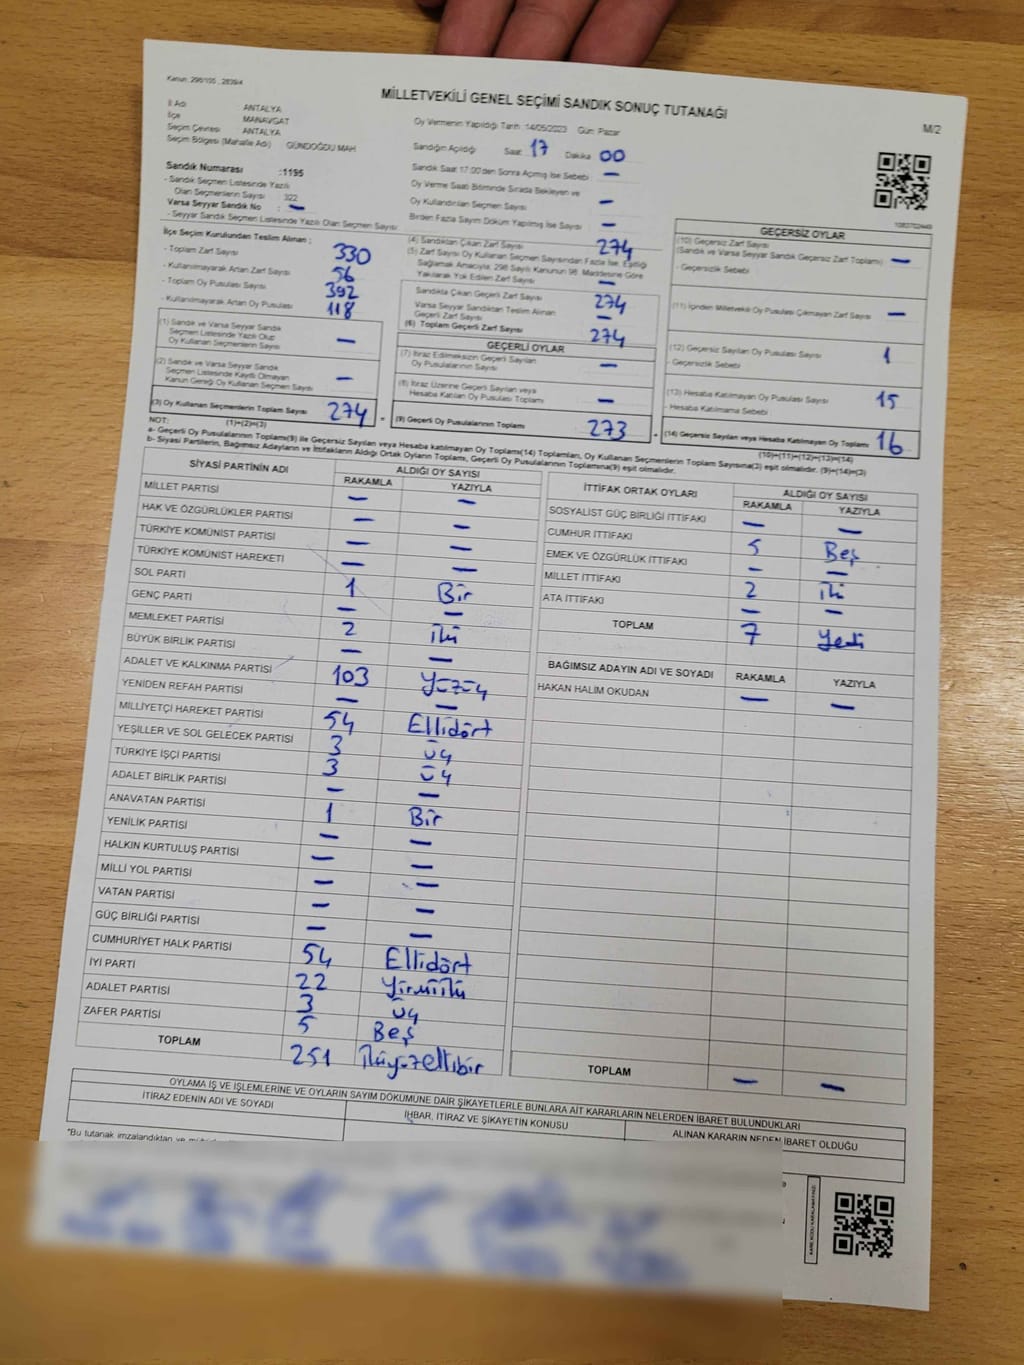 Kanun, 298/105 , 2839/4
MİLLETVEKİLİ GENEL SEÇİMİ SANDIK SONUÇ TUTANAĞI
M/2
İl Adı ANTALYA
İlçe MANAVGAT
Seçim Çevresi ANTALYA
Seçim Bölgesi (Mahalle Adı) GÜNDOĞDU MAH
Oy Vermenin Yapıldığı Tarih :14/05/2023 Gün: Pazar
Sandığın Açıldığı Saat 17 Dakika 00
Sandık Saat 17:00'den Sonra Açılmış İse Sebebi : —
Oy Verme Saati Bitiminde Sırada Bekleyen ve
Oy Kullandırılan Seçmen Sayısı —
Birden Fazla Sayım Döküm Yapılmış İse Sayısı : —
Sandık Numarası :1195
- Sandık Seçmen Listesinde Yazılı
Olan Seçmenlerin Sayısı 322
Varsa Seyyar Sandık No : —
- Seyyar Sandık Seçmen Listesinde Yazılı Olan Seçmen Sayısı
İlçe Seçim Kurulundan Teslim Alınan ;
- Toplam Zarf Sayısı 330
- Kullanılmayarak Artan Zarf Sayısı 56
- Toplam Oy Pusulası Sayısı 392
- Kullanılmayarak Artan Oy Pusulası 118
(1) Sandık ve Varsa Seyyar Sandık
Seçmen Listesinde Yazılı Olup
Oy Kullanan Seçmenlerin Sayısı —
(2) Sandık ve Varsa Seyyar Sandık
Seçmen Listesinde Kayıtlı Olmayan
Kanun Gereği Oy Kullanan Seçmen Sayısı —
(3) Oy Kullanan Seçmenlerin Toplam Sayısı 274 =
(1)+(2)=(3)
(4) Sandıktan Çıkan Zarf Sayısı 274
(5) Zarf Sayısı Oy Kullanan Seçmen Sayısından Fazla İse, Eşitliği
Sağlamak Amacıyla, 298 Sayılı Kanunun 98. Maddesine Göre
Yakılarak Yok Edilen Zarf Sayısı —
Sandıkta Çıkan Geçerli Zarf Sayısı 274
Varsa Seyyar Sandıktan Teslim Alınan
Geçerli Zarf Sayısı —
(6) Toplam Geçerli Zarf Sayısı 274
GEÇERLİ OYLAR
(7) İtiraz Edilmeksizin Geçerli Sayılan
Oy Pusulalarının Sayısı —
(8) İtiraz Üzerine Geçerli Sayılan veya
Hesaba Katılan Oy Pusulası Toplamı —
(9) Geçerli Oy Pusulalarının Toplamı 273 +
GEÇERSİZ OYLAR
(10) Geçersiz Zarf Sayısı
(Sandık ve Varsa Seyyar Sandık Geçersiz Zarf Toplamı) —
- Geçersizlik Sebebi
(11) İçinden Milletvekili Oy Pusulası Çıkmayan Zarf Sayısı —
(12) Geçersiz Sayılan Oy Pusulası Sayısı 1
- Geçersizlik Sebebi
(13) Hesaba Katılmayan Oy Pusulası Sayısı 15
- Hesaba Katılmama Sebebi
(14) Geçersiz Sayılan veya Hesaba Katılmayan Oy Toplamı 16
(10)+(11)+(12)+(13)=(14)
NOT:
a- Geçerli Oy Pusulalarının Toplamı(9) ile Geçersiz Sayılan veya Hesaba katılmayan Oy Toplamı(14) Toplamları, Oy Kullanan Seçmenlerin Toplam Sayısına(3) eşit olmalıdır. (9)+(14)=(3)
b- Siyasi Partilerin, Bağımsız Adayların ve İttifakların Aldığı Ortak Oyların Toplamı, Geçerli Oy Pusulalarının Toplamına(9) eşit olmalıdır.
SİYASİ PARTİNİN ADI ALDIĞI OY SAYISI
RAKAMLA YAZIYLA
MİLLET PARTİSİ — —
HAK VE ÖZGÜRLÜKLER PARTİSİ — —
TÜRKİYE KOMÜNİST PARTİSİ — —
TÜRKİYE KOMÜNİST HAREKETİ — —
SOL PARTİ 1 Bir
GENÇ PARTİ — —
MEMLEKET PARTİSİ 2 iki
BÜYÜK BİRLİK PARTİSİ — —
ADALET VE KALKINMA PARTİSİ 103 Yüzüç
YENİDEN REFAH PARTİSİ — —
MİLLİYETÇİ HAREKET PARTİSİ 54 Ellidört
YEŞİLLER VE SOL GELECEK PARTİSİ 3 üç
TÜRKİYE İŞÇİ PARTİSİ 3 üç
ADALET BİRLİK PARTİSİ — —
ANAVATAN PARTİSİ 1 Bir
YENİLİK PARTİSİ — —
HALKIN KURTULUŞ PARTİSİ — —
MİLLİ YOL PARTİSİ — —
VATAN PARTİSİ — —
GÜÇ BİRLİĞİ PARTİSİ — —
CUMHURİYET HALK PARTİSİ 54 Ellidört
İYİ PARTİ 22 Yirmiiki
ADALET PARTİSİ 3 üç
ZAFER PARTİSİ 5 Beş
TOPLAM 251 ikiyüzellibir
İTTİFAK ORTAK OYLARI ALDIĞI OY SAYISI
RAKAMLA YAZIYLA
SOSYALİST GÜÇ BİRLİĞİ İTTİFAKI — —
CUMHUR İTTİFAKI 5 Beş
EMEK VE ÖZGÜRLÜK İTTİFAKI — —
MİLLET İTTİFAKI 2 iki
ATA İTTİFAKI — —
TOPLAM 7 Yedi
BAĞIMSIZ ADAYIN ADI VE SOYADI RAKAMLA YAZIYLA
HAKAN HALİM OKUDAN — —
TOPLAM — —
OYLAMA İŞ VE İŞLEMLERİNE VE OYLARIN SAYIM DÖKÜMÜNE DAİR ŞİKAYETLERLE BUNLARA AİT KARARLARIN NELERDEN İBARET BULUNDUKLARI
İTİRAZ EDENİN ADI VE SOYADI İHBAR, İTİRAZ VE ŞİKAYETİN KONUSU ALINAN KARARIN NEDEN İBARET OLDUĞU
"Bu tutanak imzalandıktan ve